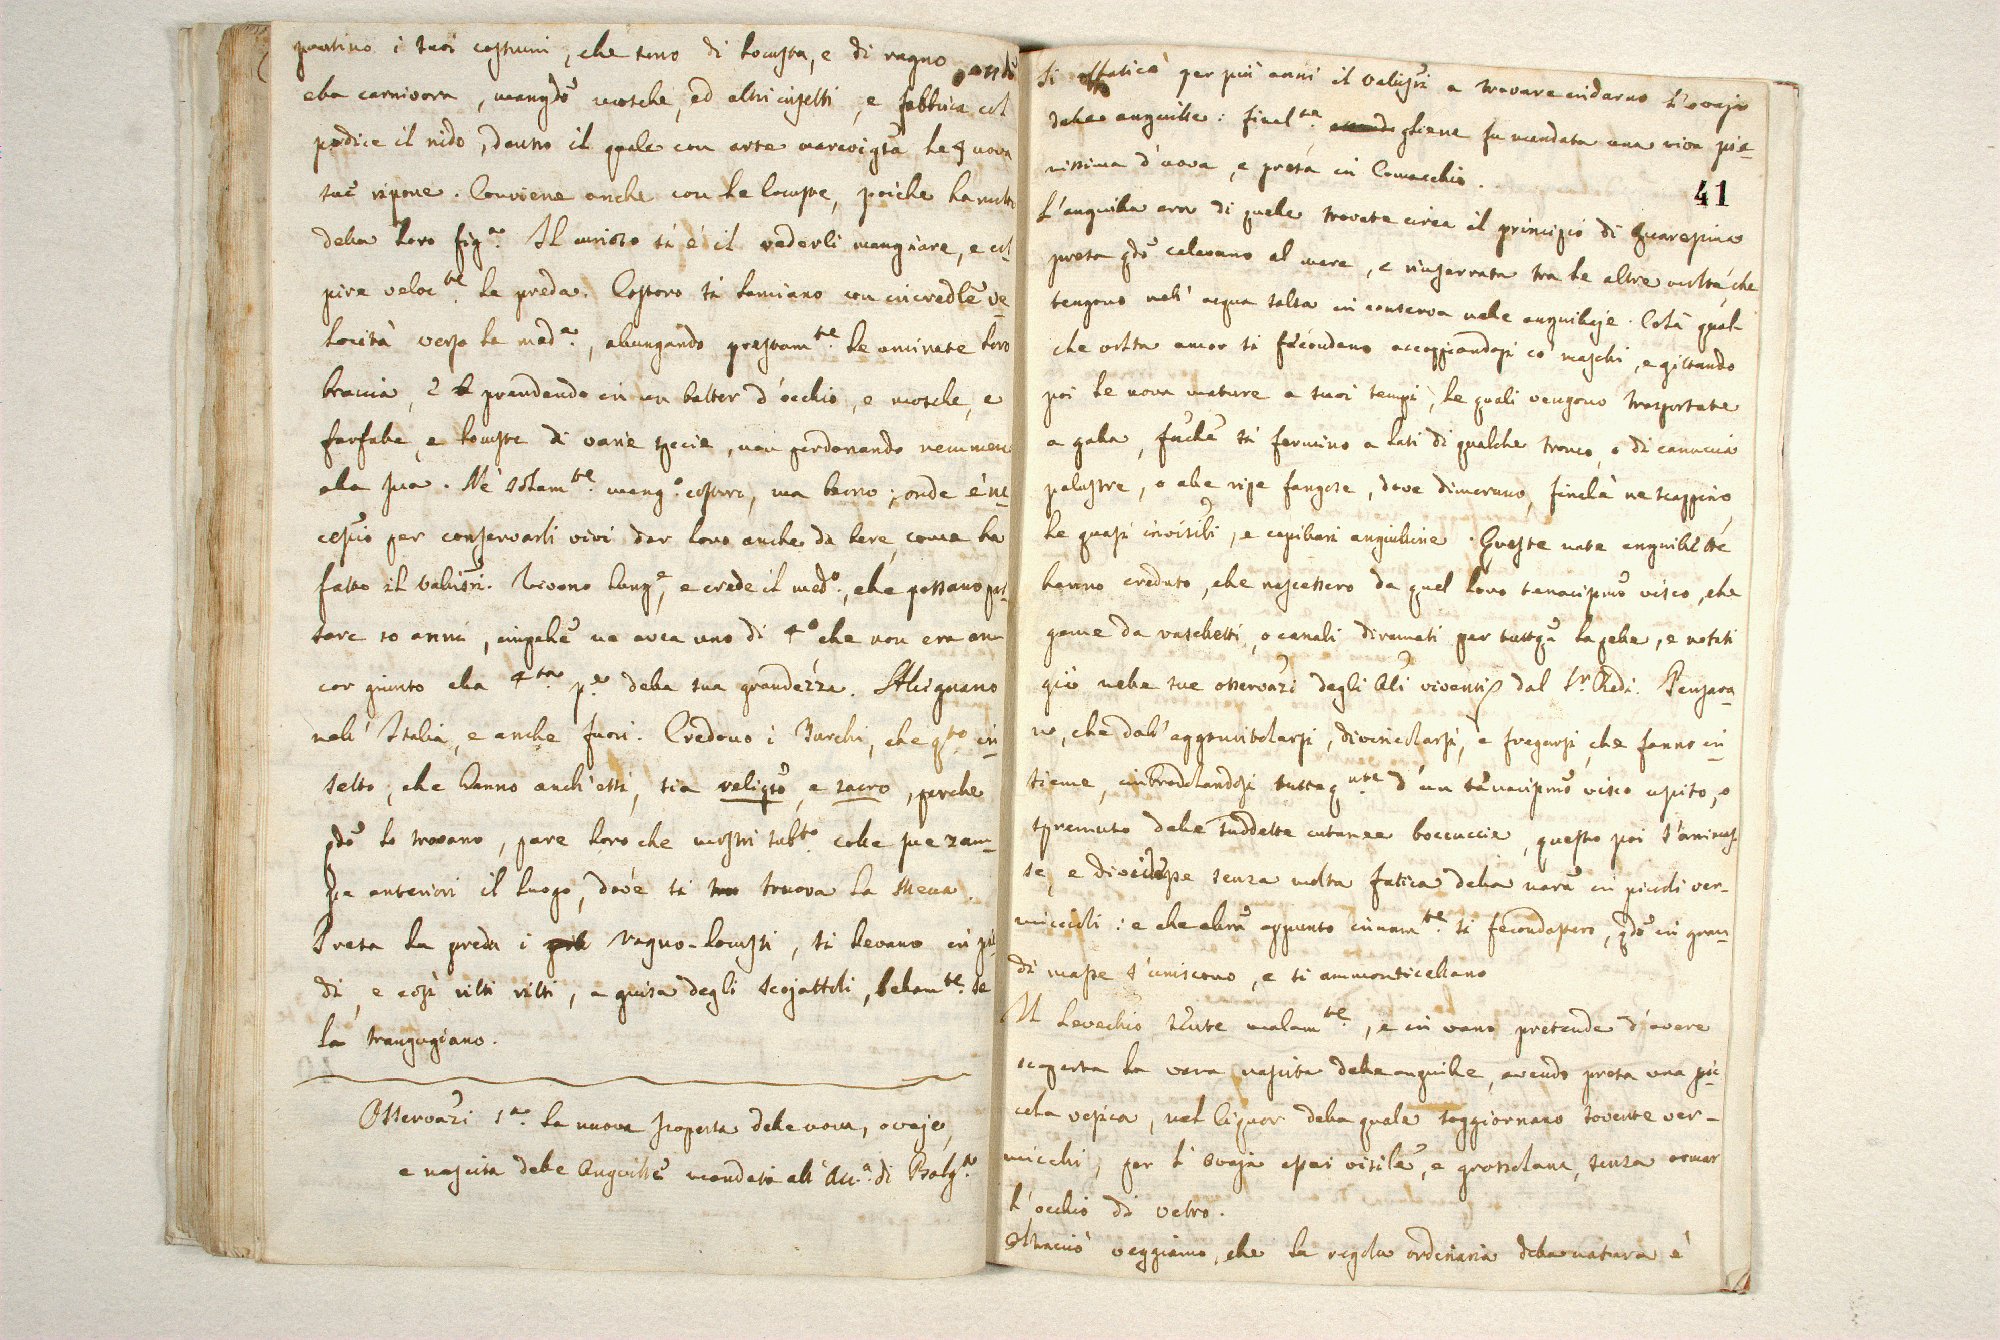 partino i suoi costumi, che sono di locusta, e di ragno essendo
ella carnivora, mangdo mosche, ed altri insetti, e fabbrica col
podice il nido, dentro il quale con arte maravigsa le uova
sue ripone. Conviene anche con le locuste, poiche hanno
della loro figa. Il curioso si è il vederli mangiare, e col-
pire velocte la preda. Costoro si lanciano con incredle ve-
locità verso la meda, allungando prestamte le uncinate loro
braccia, e prendendo in un batter d'occhio, e mosche, e
farfalle, e locuste di varie specie, non perdonando nemmeno
alla sua. Nè solamte mango costoro, ma beono; onde è ne-
cessio per conservarli vivi dar loro anche da bere, come ha
fatto il Valisri. Vivono lunge, e crede il medo, che possano pas-
sare 10 anni, imperche ne avea uno di 4o che non era an-
cor giunto alla 4ta pe della sua grandezza. Allignano
nell'Italia, e anche fuori. Credono i Turchi, che qto in-
setto, che hanno anch'essi, sia religso, e sacro, perche
qdo lo trovano, pare loro che mostri subto colle sue zam-
pe anteriori il luogo, dov'è si truova la Mecca.
Presa la preda i Ragno-locusti, si levano in pie-
di, e così ritti ritti, a guisa degli scojattoli, bellamte se
la trangugiano.
Osservazi sa la nuova scoperta delle uova, ovaje,
e nascita delle Anguille mandata all'Acca di Bologa
Si affaticò per più anni il Valisri a trovare indarno l'ovaja
delle anguille: finalte gliene fu mandata una viva pie-
nissima d'uova, e presa in Comacchio.
41
L'anguilla era di quelle trovate circa il principio di
presa qdo calavano al mare, e rinserrata tra le altre molte, che
tengono nell'acqua salsa in conserva nelle anguillaje. Colà qual-
che volta ancor si fecondano accoppiandosi co' maschi, e gittando
poi le uova mature a suoi tempi, le quali vengono trasportate
a galla, finche si fermino a lati di qualche tronco, o di cannuccia
palustre, o alle ripe fangose, dove dimorano, finchè ne scappino
le quasi invisibili, e capillari anguilline. Queste nate anguillette
hanno creduto, che nascessero da quel loro tenacismo visco, che
geme da vaschetti, o canali diramati per tuttqta la pelle, e notati
già nelle sue osservazi degli Ali viventi dal Sr Redi. Pensava-
no, che dall'aggomitolarsi, divincolarsi, e fregarsi, che fanno in-
sieme, imbrodolandosi d'un tenacismo visco uscito, o
spremuto dalle suddette cutanee boccuccie, questo poi s'animas-
se, e dividesse senza molta fatica della nara in piccoli ver-
miccioli: e che allora appunto si fecondassero, qdo in gran-
di masse s'uniscono, e si ammonticellano
Il Levechio sente malamte, e in vano pretende d'avere
scoperta la vera nascita delle anguille, avendo presa una pic-
cola vescica, nel liquor della quale soggiornano sovente ver-
micelli, per l'ovaja assai visile, e grossolana, senza armar
l'occhio di vetro.
Acciò veggiamo, che la regola ordinaria della natura è